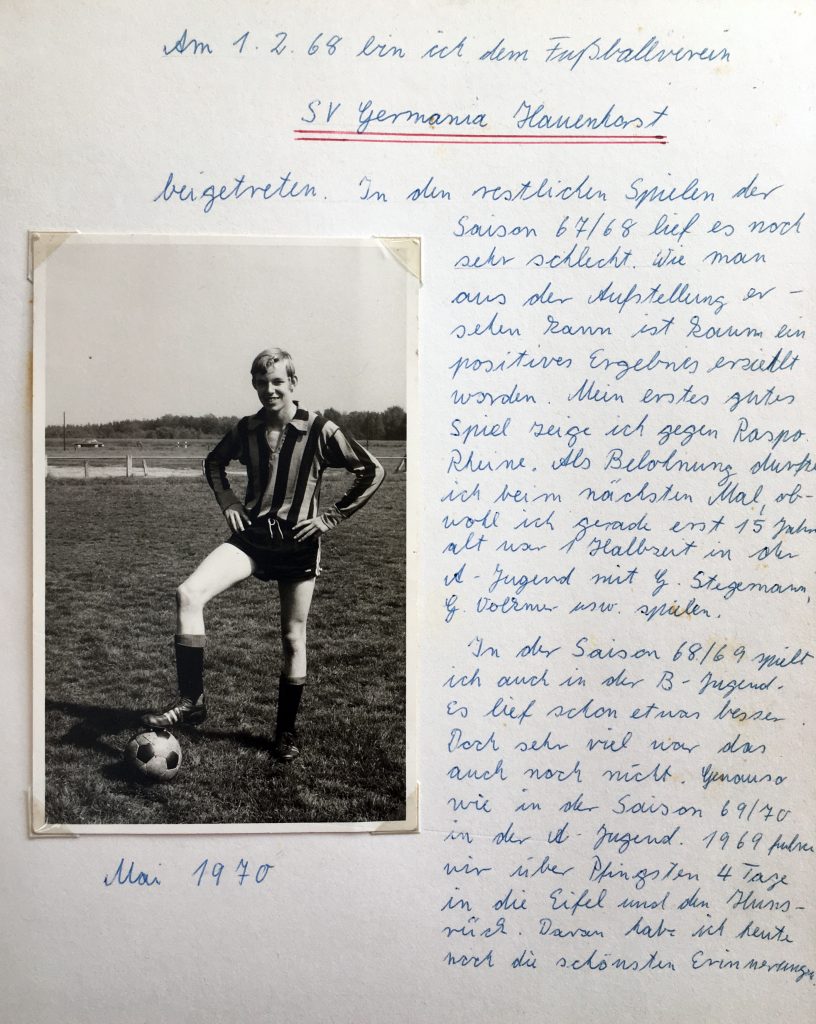 Am 1. 2. 68 bin ich dem Fußballverein
SV Germania Hauenhorst
beigetreten. In den restlichen Spielen der
Saison 67/68 lief es noch
sehr schlecht. Wie man
aus der Aufstellung er-
sehen kann ist kaum ein
positives Ergebnis erziehlt
worden. Mein erstes gutes
Spiel zeige ich gegen Raspo.
Rheine. Als Belohnung durfte
ich beim nächsten Mal, ob-
woll ich gerade erst 15 Jahre
alt war 1 Halbzeit in der
A-Jugend mit G. Stegemann,
G. Volkmer usw. spielen.
In der Saison 68/69 spielt
ich auch in der B-Jugend.
Es lief schon etwas besser.
Doch sehr viel war das
auch noch nicht. Genauso
wie in der Saison 69/70
in der A-Jugend. 1969 fuhren
wir über Pfingsten 4 Tage
in die Eifel und den Huns-
rück. Daran habe ich heute
noch die schönsten Erinnerungen.
Mai 1970